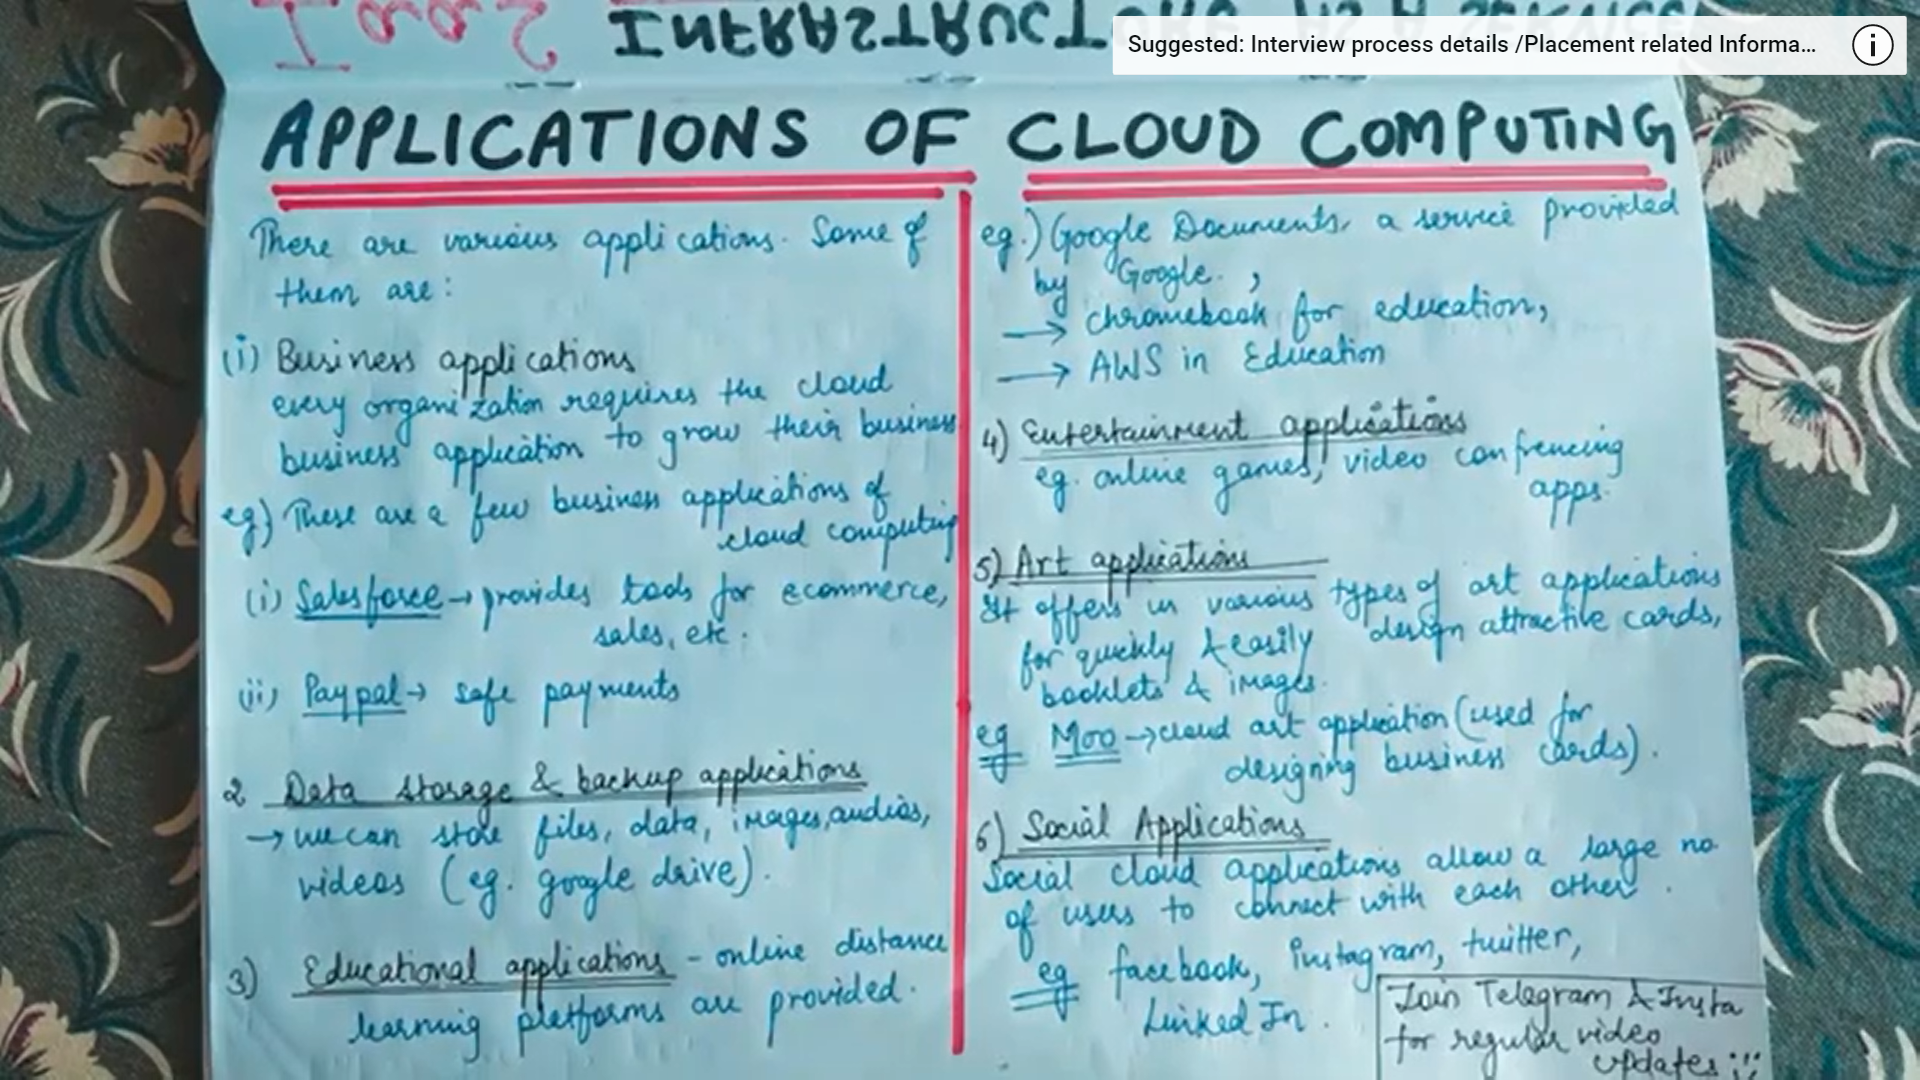 INFRASTRUCTURE AS A SERVICE
Suggested: Interview process details /Placement related Informa...
APPLICATIONS OF CLOUD COMPUTING
There are various applications. Some of
them are:
(i) Business applications
every organization requires the cloud
business application to grow their business
eg) These are a few business applications of
cloud computing
(i) Salesforce → provides tools for ecommerce,
sales, etc.
(ii) Paypal → safe payments
2 Data storage & backup applications
→ we can store files, data, images, audios,
videos (eg. google drive).
3) Educational applications - online distance
learning platforms are provided.
eg.) Google Documents, a service provided
by Google.,
→ chromebook for education,
→ AWS in Education
4) Entertainment applications
eg. online games, video confrencing
apps.
5) Art applications
It offers us various types of art applications
for quickly & easily design attractive cards,
booklets & images.
eg Moo → cloud art application (used for
designing business cards).
6) Social Applications
Social cloud applications allow a large no.
of users to connect with each other.
eg facebook, instagram, twitter,
Linked In.
Join Telegram & Insta
for regular video
updates